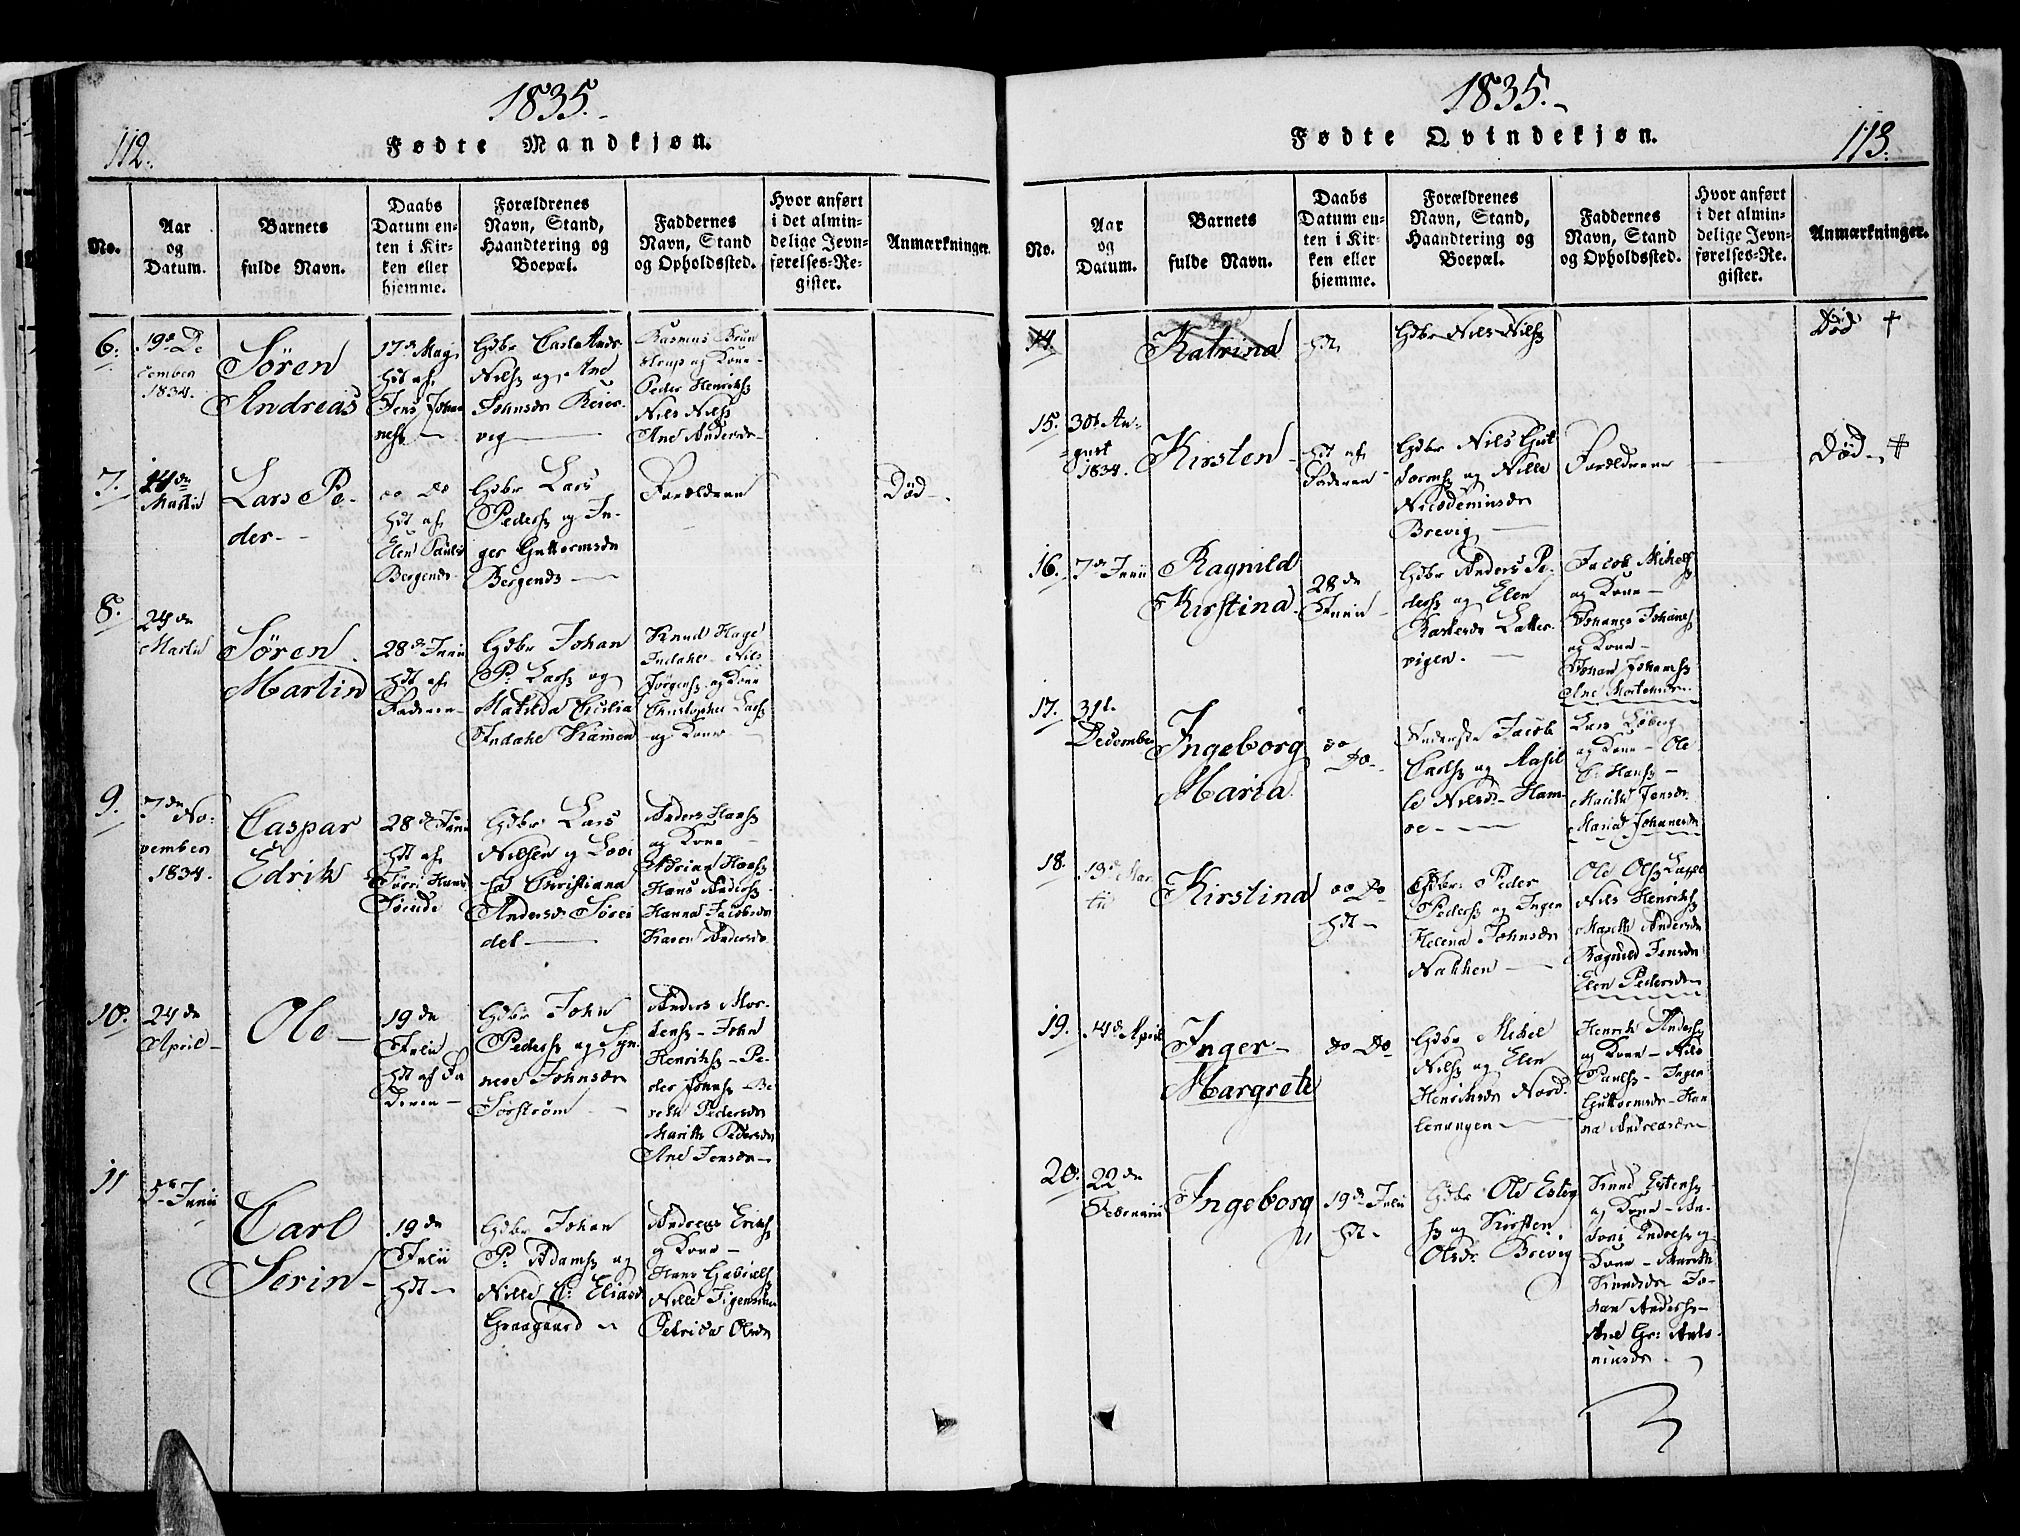 1835.
112.
Fødte Mandkjøn.
No.
Aar
og
Datum.
Barnets
fulde Navn.
Daabs
Datum en-
ten i Kir-
ken eller
hjemme.
Forældrenes
Navn, Stand,
Haandtering og
Boepæl.
Faddernes
Navn, Stand
og Opholdssted.
Hvor anført
i det almin-
delige Jevn-
førelses-Re-
gister.
Anmærkninger.
6.
19de De
cember
1834.
Søren
Andreas
17de Maj
Hdt af
Jens Johan
nesen
Gdbr Carl And
Nilsen og Ane
Johnsdr Keier
vig
Rasmus Brun
strup og Kone
Peder Henriks
Nils Nils
Ane Andersdr
7.
14de
Martii
Lars Pe-
der
do Do
Hdt af
Elen Pauls
Bergends
Gdbr Lars
Peders og In-
ger Guttormsdr
Bergends
Foreldrene
Død
8.
24de
Martii
Søren
Martin
28de Junii
Hdt af
Faderen
Gdbr Johan
P. Lars og
Matilda Cicilia
Indahl Kamen
Knud Hage
Indahl Nils
Jørgens og Kone
Christopher Lars
og Kone
9.
7de No-
vember
1834.
Caspar
Edrik
28de Junii
Hdt af
Gdbr Lars
Nilsen og Lovi
sa Christiana
Andersdr Sørei
det
Anders Hans
og Kone
Adrian Hans
Hans Anders
Hanna Jacobsdr
Karen Andersdr
10.
24de
April
Ole
19de
Julii
Hdt af Fa
deren
Gdbr John
Peders og Syn
neve Johnsdr
Sørstrøm
Anders Mor-
tens John
Henriks Pe-
der Johns Be
reth Pedersdr
Marith Pedersdr
Ane Jensdr
11
5te Junii
Carl
Serin
19de
Julii
Hdt
Gdbr Johan
P. Adams og
Nille C. Eliasd
Graagaard
Andreas Eriks
og Kone
Hans Gabriels
Petrica Olsdr
1835.
Fødte Qvindekjøn.
113.
No.
Aar
og
Datum.
Barnets
fulde Navn.
Daabs
Datum en-
ten i Kir-
ken eller
hjemme.
Forældrenes
Navn, Stand,
Haandtering og
Boepæl.
Faddernes
Navn, Stand
og Opholdssted.
Hvor anført
i det almin-
delige Jevn-
førelses-Re-
gister.
Anmærkninger.
14.
Ane
Katrina
Hdt
Gdbr Nils Nils
Død †
15.
30te Au-
gust
1834.
Kirsten
Hdt af
Faderen
Gdbr Nils Gut
torms og Nille
Nicodemusdr
Brevig
Foreldrene
Død †
16.
7de Junii
Ragnild
Kirstina
28de
Junii
Gdbr Anders Pe-
ders og Elen
Latter
vigen.
Jacob Mikels
og Kone
Johannes Johans
og Kone
Johan Johans
Ane Mortensdr
17.
31te
December
Ingeborg
Maria
do
Do
Jacob
Carls og Masel
le Nilsd. Ham-
Lars Løberg
og Kone Ole
C. Hans
Marith Jensdr
Maria Johansdr
18.
13de Mar
tii
Kirstina
do Do
Hdt
Gdbr Peder
Peders og Inger
Helena Johnsdr
Nakken
Ole Ols Lappe
Nils Henriks
Mareth Andersdr
Ragnild Jensdr
Elen Pedersdr
19.
14de April
Inger
Margrete
do Do
Gdbr Mikel
Nils og Elen
Henriksdr Nord
lenangen
Henrik Anders
og Kone Nils
Pauls Inger
Guttormsdr Han
na Andreasdr
20.
22de
Februarii
Ingeborg
19de Julii
Hdt
Gdbr Ole Esteg
s og Kirsten
Olsdr Brevig
Knud Estens
og Kone An-
toni Endres og
Kone Marith
Knudsdr Jo-
han Anders
Ane Gr. Anto
niusdr